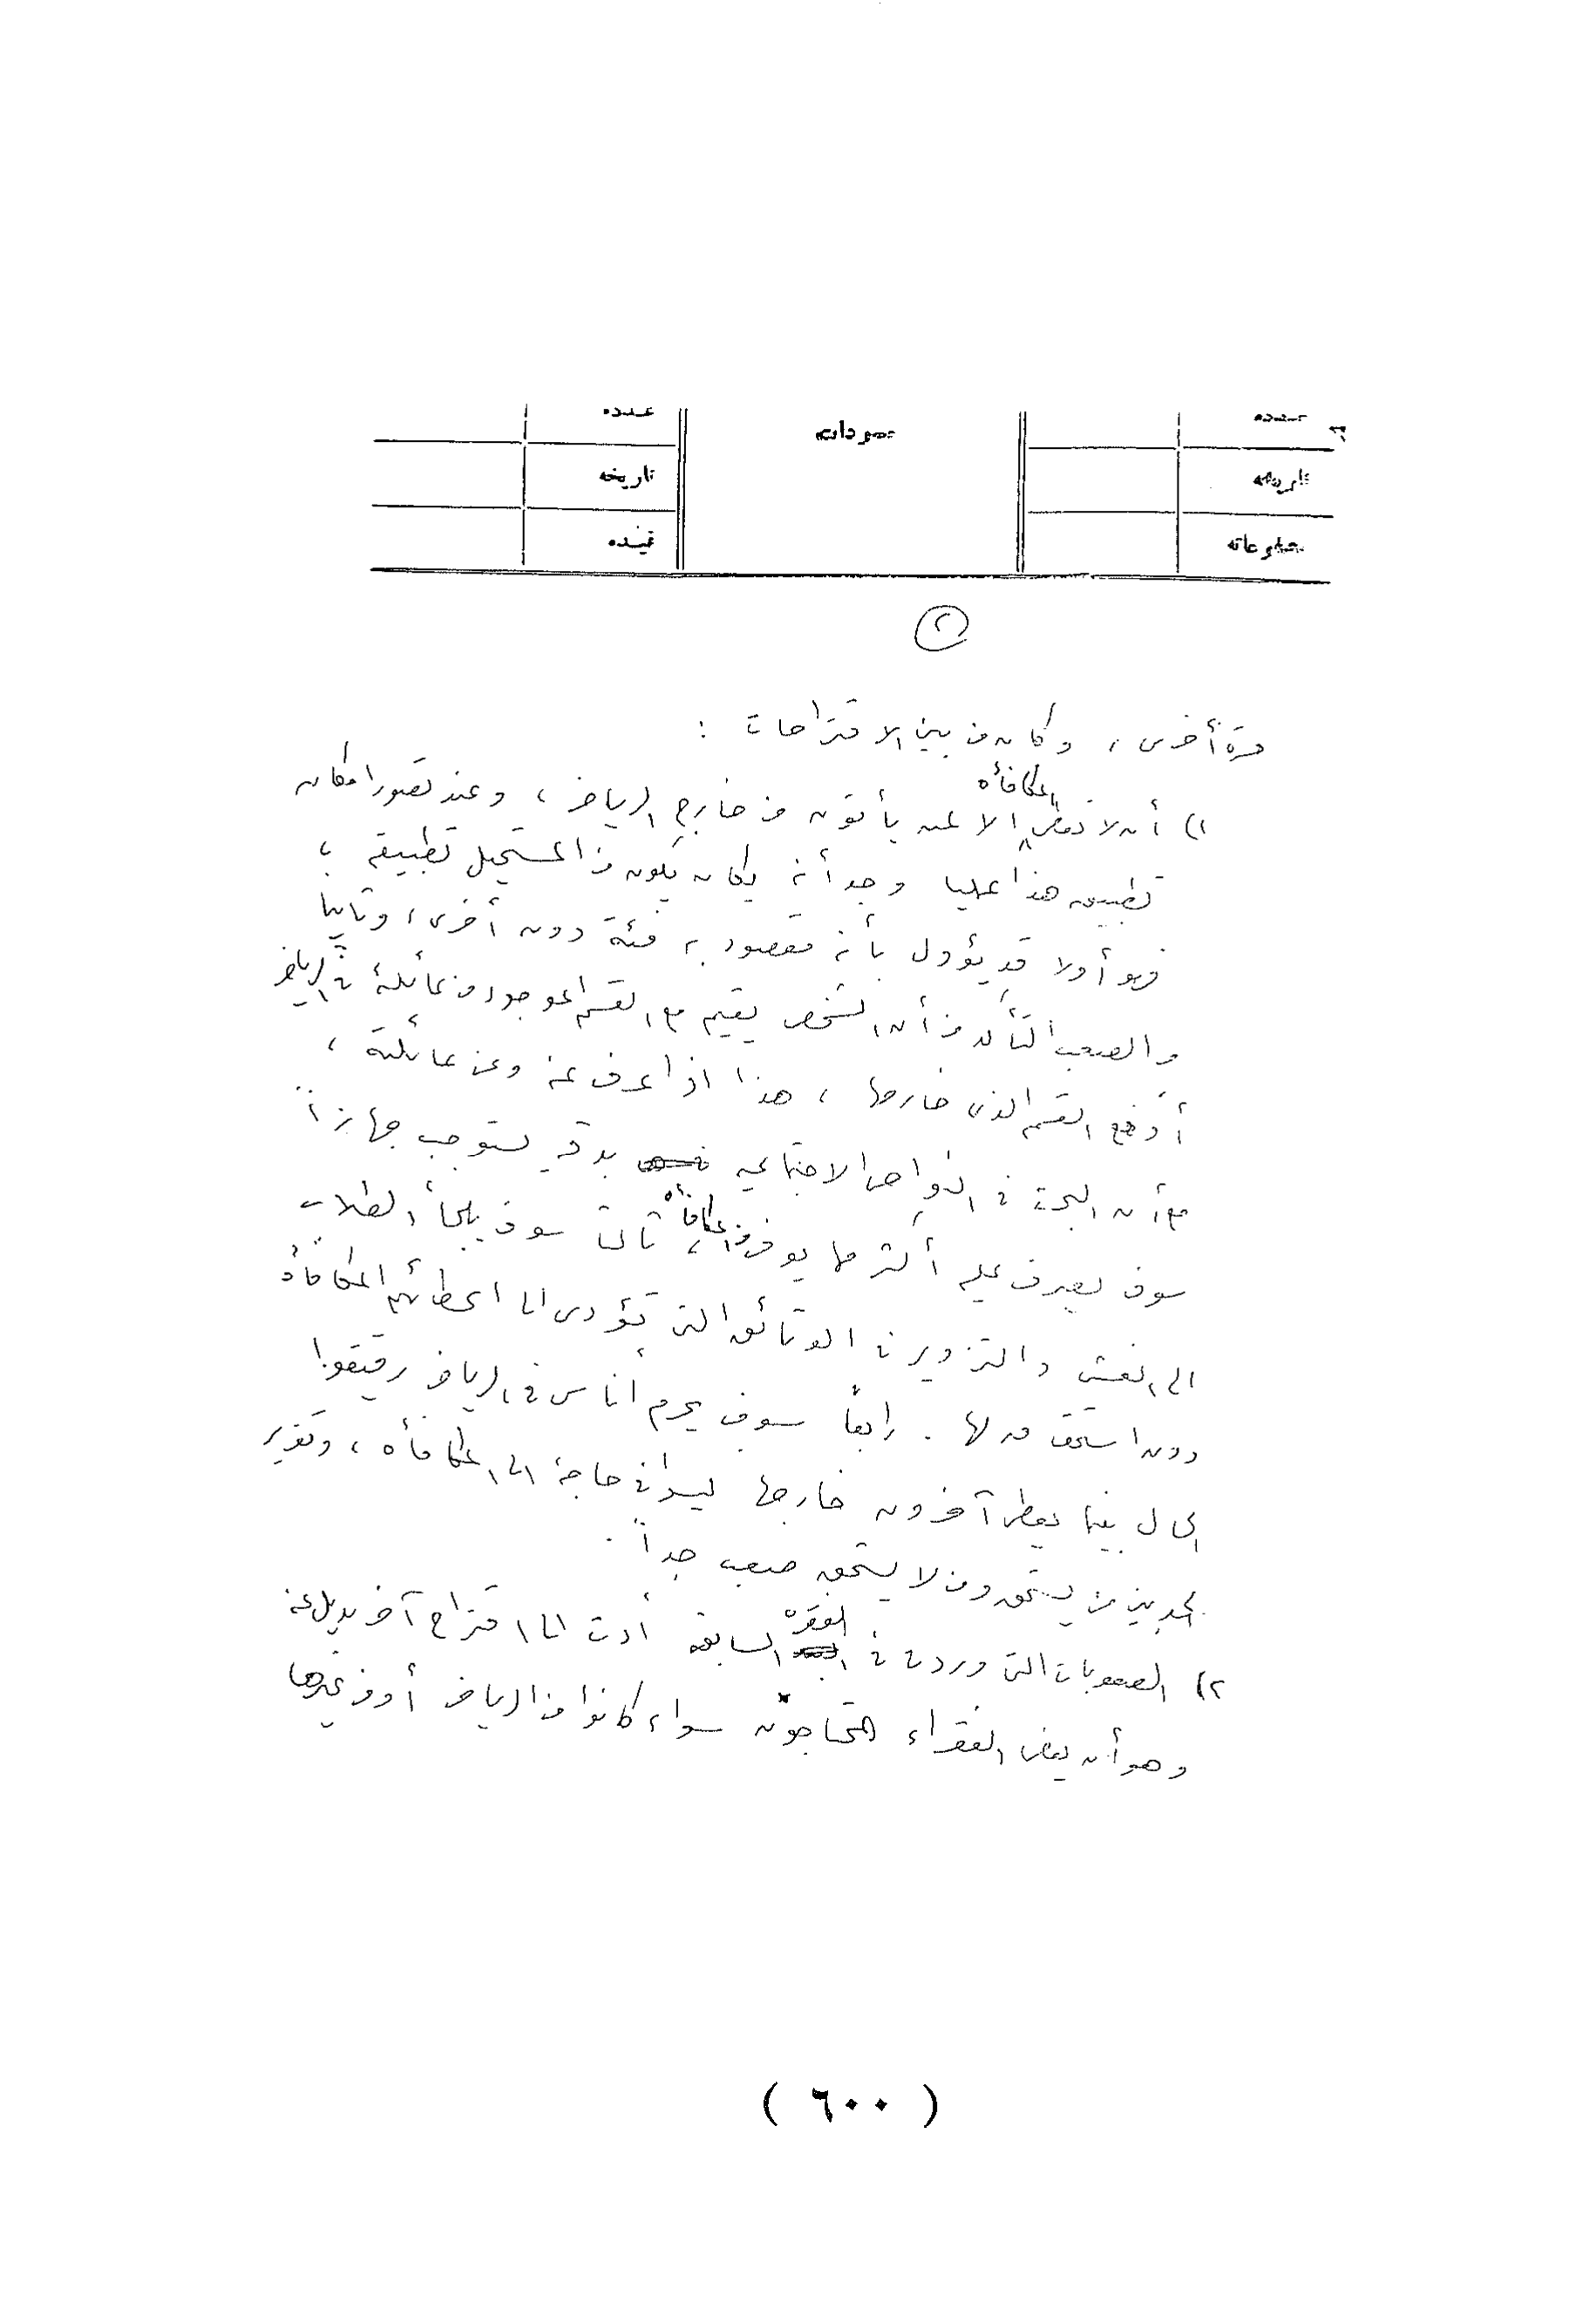 عدده
مسودات
عدده
تاريخه
تاريخه
مشفوعاته
قيده
٢
مرة أخرى، وكان من بين الاقتراحات :
المكافأة
١) أن لا تعطى إلا لمن يأتون من خارج الرياض، وعند تصور إمكان
تطبيق هذا عمليا وجد أنه يكاد يكون من المستحيل تطبيقه،
فهو أولا قد يؤول بأنه مقصود به فئة دون أخرى، وثانيا
من الصعب التأكد من أن الشخص يقيم مع القسم الموجود من عائلته في الرياض
أو مع القسم الذي خارجها، هذا إذا عرف عنه وعن عائلته،
مع أن البحث في النواحي الاجتماعية بدقة يستوجب جهازاً
سوف يصرف عليه أكثر مما يوفر من المكافأة، ثالثا سوف يلجأ الطلاب
إلى الغش والتزوير في الوثائق التي تؤدي إلى إعطائهم المكافأة
دون استحقاق لها. رابعاً سوف يحرم أناس في الرياض رقيقوا
الحال بينما يعطى آخرون خارجها ليسوا في حاجة إلى المكافأة، وتقرير
من يستحق ومن لا يستحق صعب جداً.
٢) الصعوبات التي وردت في الفقرة السابقة أدت إلى اقتراح آخر بديل عنه
وهو أن يعطى الفقراء المحتاجون سواء كانوا من الرياض أو من غيرها
( ٦٠٠ )